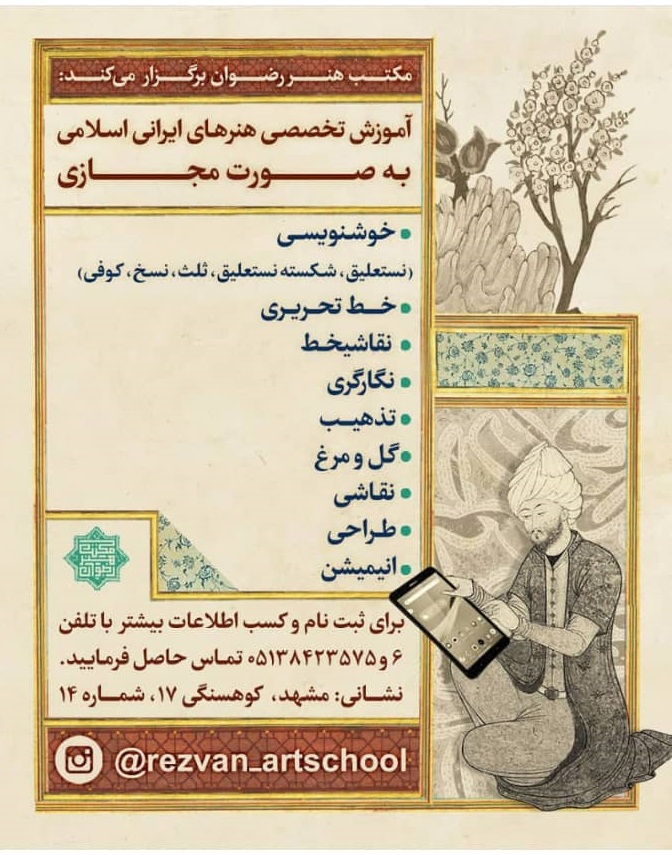 مکتب هنر رضوان برگزار می‌کند:
آموزش تخصصی هنرهای ایرانی اسلامی
به صورت مجازی
• خوشنویسی
(نستعلیق، شکسته نستعلیق، ثلث، نسخ، کوفی)
• خط تحریری
• نقاشیخط
• نگارگری
• تذهیب
• گل و مرغ
• نقاشی
• طراحی
• انیمیشن
مکتب هنر رضوان
برای ثبت نام و کسب اطلاعات بیشتر با تلفن
۰۵۱۳۸۴۲۳۵۷۵ و ۶ تماس حاصل فرمایید.
نشانی: مشهد، کوهسنگی ۱۷، شماره ۱۴
@rezvan_artschool